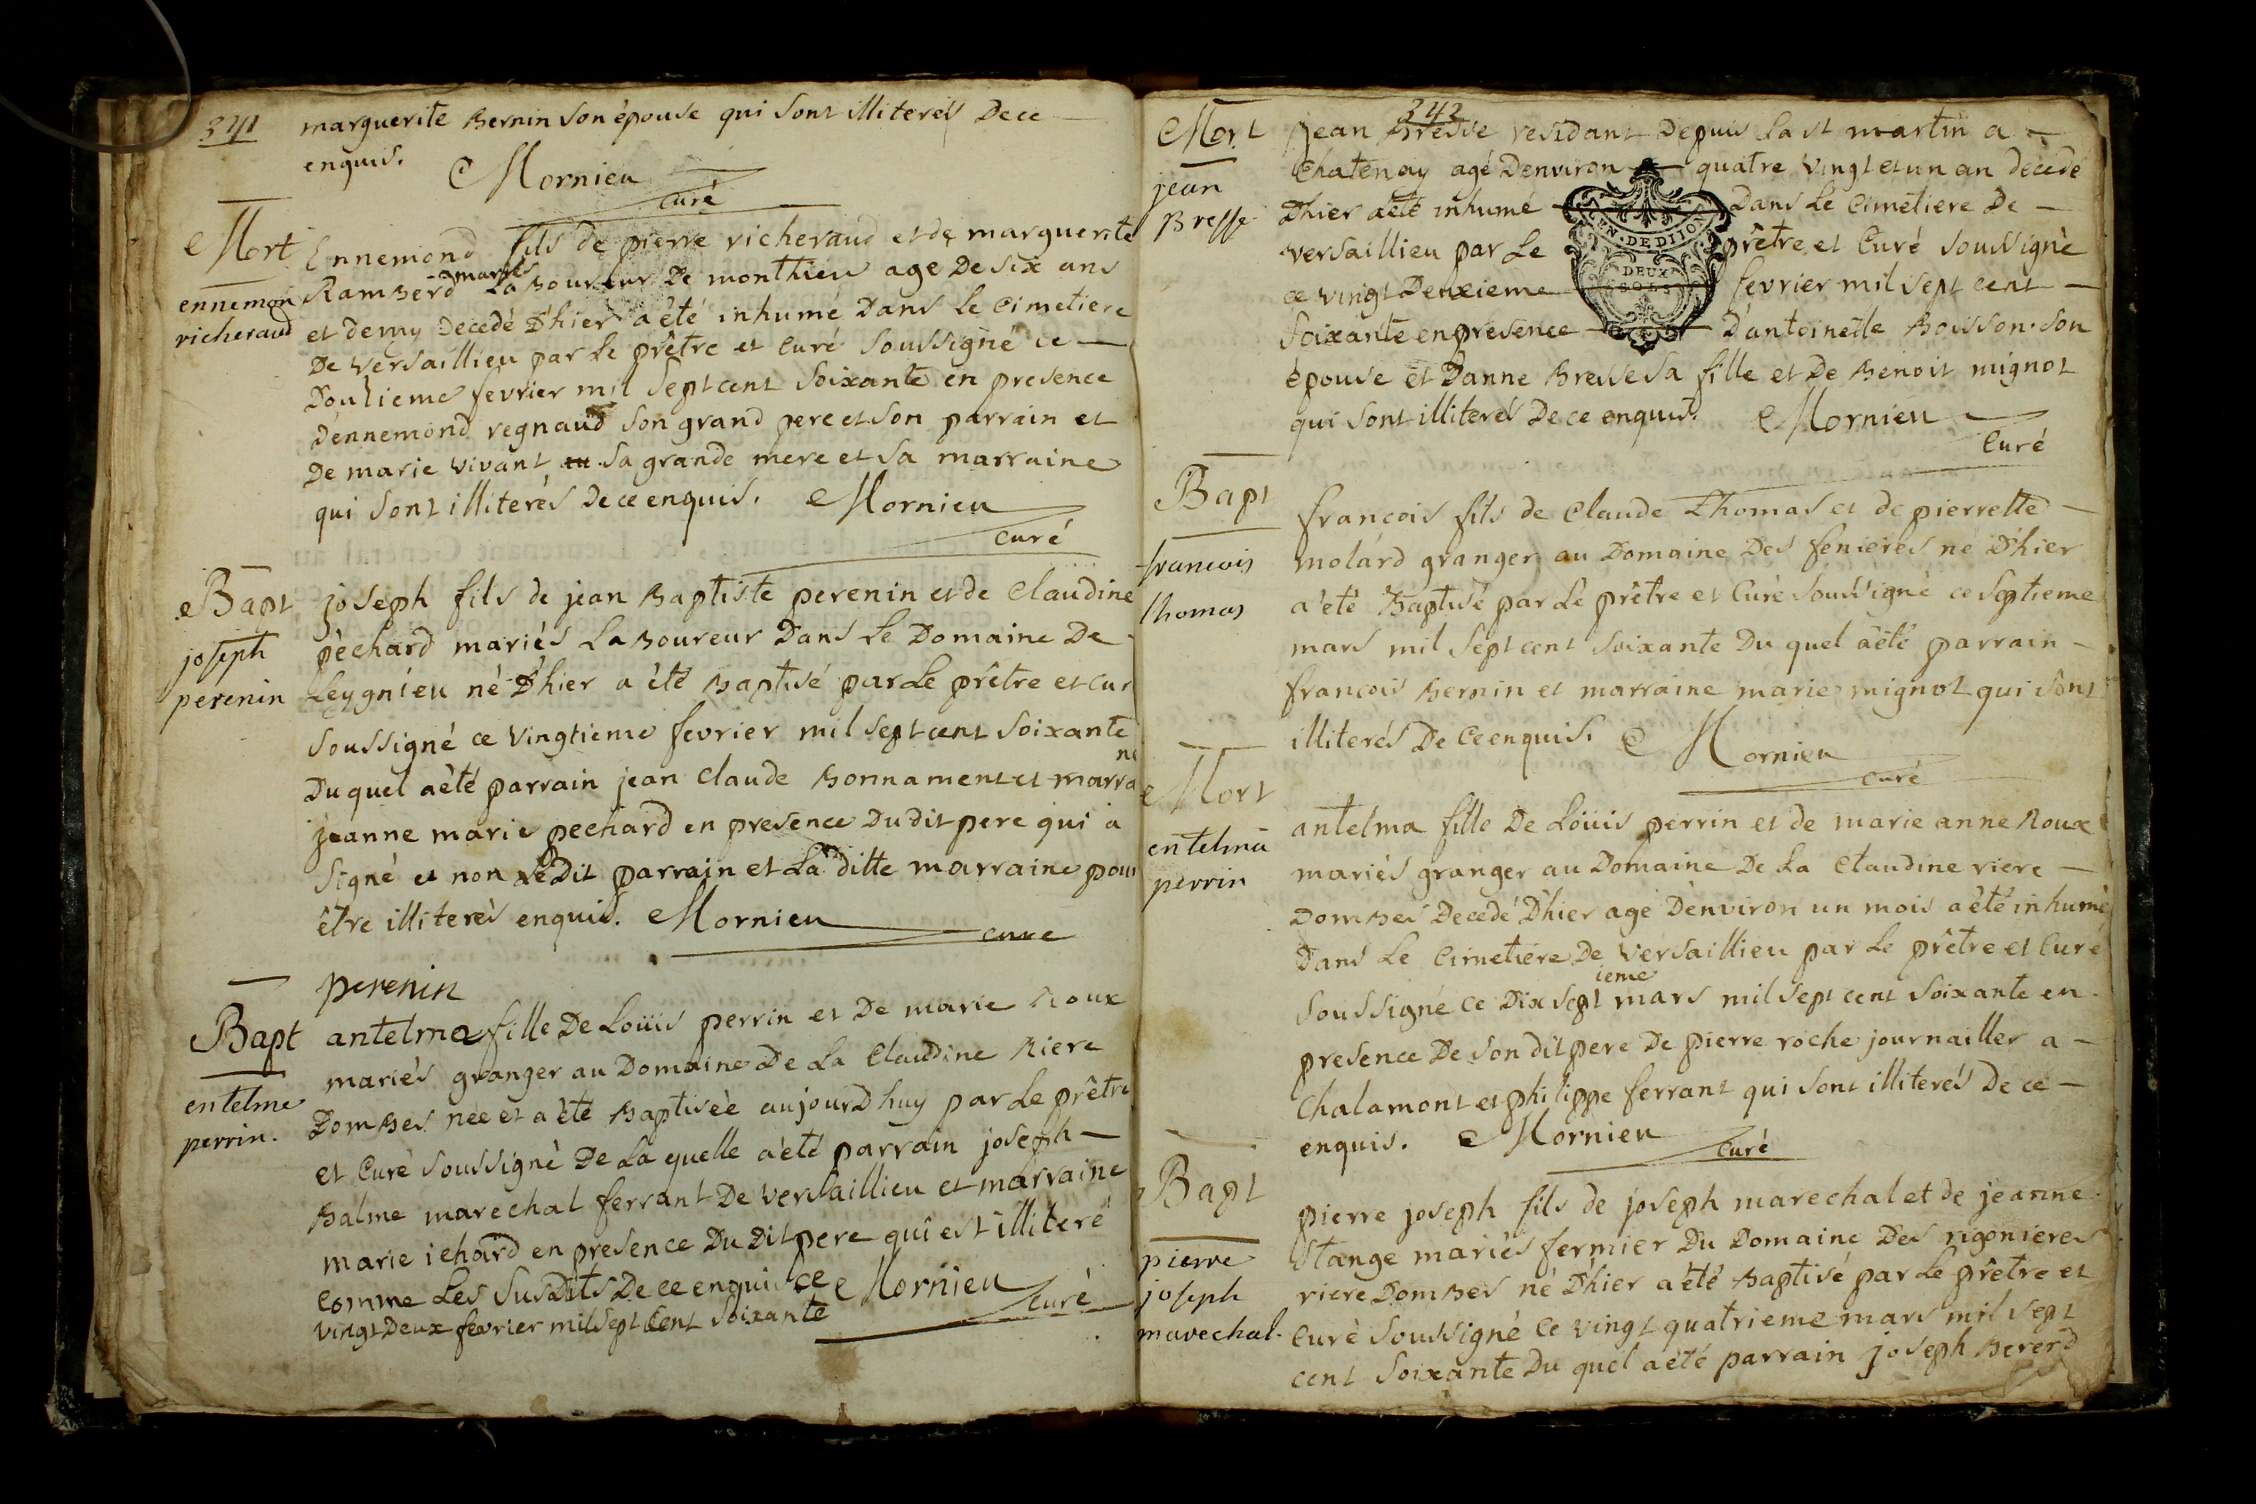 341
marguerite Bernin son épouse qui sont illiterés De ce
enquis.
Mornieu
curé
Mort
ennemon
richeraud
Ennemond fils de pierre richeraud et de marguerite
Ramberd mariés Laboureur De monthieu age De six ans
et demy Decedé D'hier a été inhumé Dans Le Cimetiere
De Versaillieu par Le prêtre et Curé Soussigné ce
Douzieme fevrier mil Sept cent Soixante en presence
D'ennemond regnaud son grand pere et son parrain et
De marie vivant sa grande mere et sa marraine
qui sont illiterés De ce enquis. Mornieu
curé
Bapt
joseph
perenin
joseph fils de jean Baptiste perenin et de Claudine
péchard mariés Laboureur Dans Le Domaine De
Leygnieu né D'hier a été Baptisé par Le prêtre et Cur
Soussigné ce Vingtieme fevrier mil sept cent Soixante
Du quel a été parrain jean Claude Bonnament et marra
ne
jeanne marie pechard en presence Du dit pere qui a
Signé et non Le Dit parrain et La ditte marraine pour
être illiterés enquis. Mornieu
cure
perenin
Bapt
entelme
perrin.
antelma fille De Loüis perrin et De marie Roux
mariés granger au Domaine De La Claudine Riere
Dombes née et a été Baptisée aujourd huy par Le prêtre
et Curé Soussigné De La quelle a été parrain joseph
Balme marechal ferrant De Versaillieu et marraine
marie ichard en presence Du Dit pere qui est illiteré
comme Les Susdits De ce enquis ce Mornieu
curé
vingt Deux fevrier mil Sept Cent Soixante
342
Mort
jean
Bresse
jean Bresse residant Depuis La st martin a
Chatenay agé D'environ quatre vingt et un an décedé
D'hier a été inhumé Dans Le Cimetiere De
Versaillieu par Le prêtre et Curé Soussigné
ce vingt Deuxieme fevrier mil sept cent
Soixante en presence D'antoinette Boisson son
épouse et D'anne Bresse sa fille et De Benoit mignot
qui sont illiterés De ce enquis. Mornieu
Curé
GEN. DE DIJON
DEUX
SOLS
Bapt
francois
thomas
francois fils de Claude Thomas et de pierrette
molard granger au Domaine Des fenieres né D'hier
a été Baptisé par Le prêtre et Curé Soussigné ce Septieme
mars mil Sept cent Soixante Du quel a été parrain
francois Bernin et marraine marie mignot qui sont
illiterés De Ce enquis. Mornieu
curé
Mort
entelma
perrin
antelma fille De Loüis perrin et de marie anne Roux
mariés granger au Domaine De La Claudine riere
Dombes Decedé D'hier agé D'environ un mois a été inhumé
Dans Le Cimetiere De Versaillieu par Le prêtre et Curé
Soussigné ce Dix sept ieme mars mil sept cent Soixante en
presence De son dit pere De pierre roche journailler a
Chalamont et philippe ferrant qui sont illiterés De ce
enquis. Mornieu
Curé
Bapt
pierre
joseph
marechal.
pierre joseph fils de joseph marechal et de jeanne
Stange mariés fermier Du Domaine Des rigonieres
riere Dombes né D'hier a été Baptisé par Le prêtre et
Curé Soussigné Ce vingt quatrieme mars mil sept
cent Soixante Du quel a été parrain joseph Bererd